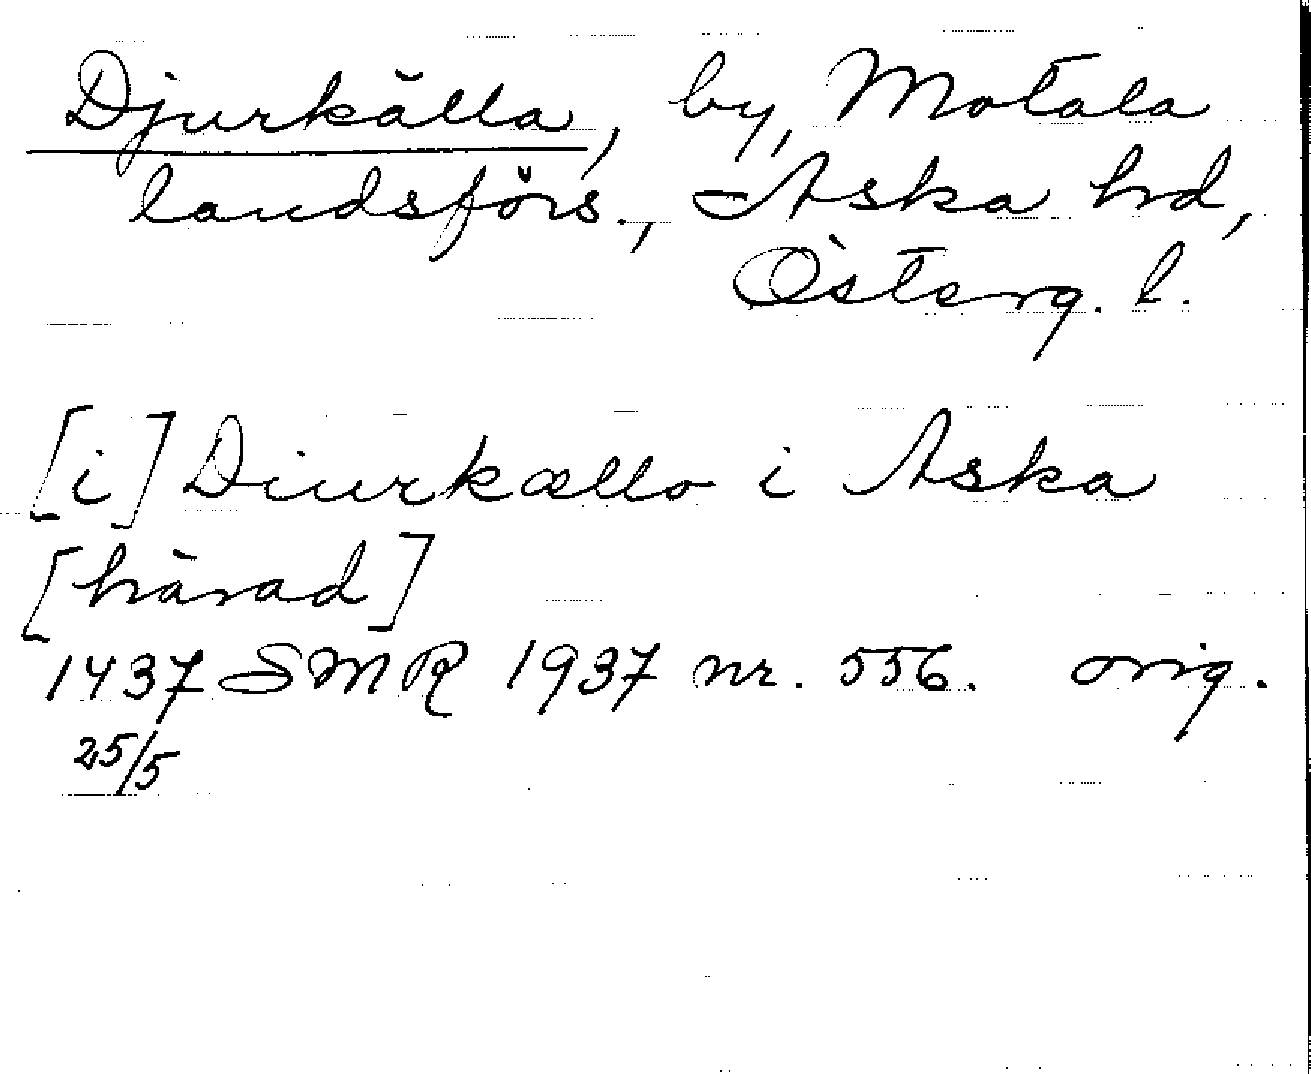 Djurkälla, by, Motala
landsförs., Aska hd,
Österg. l.
[i] Diurkællo i Aska
[härad]
1437 SMR 1937 nr. 556. orig.
25/5